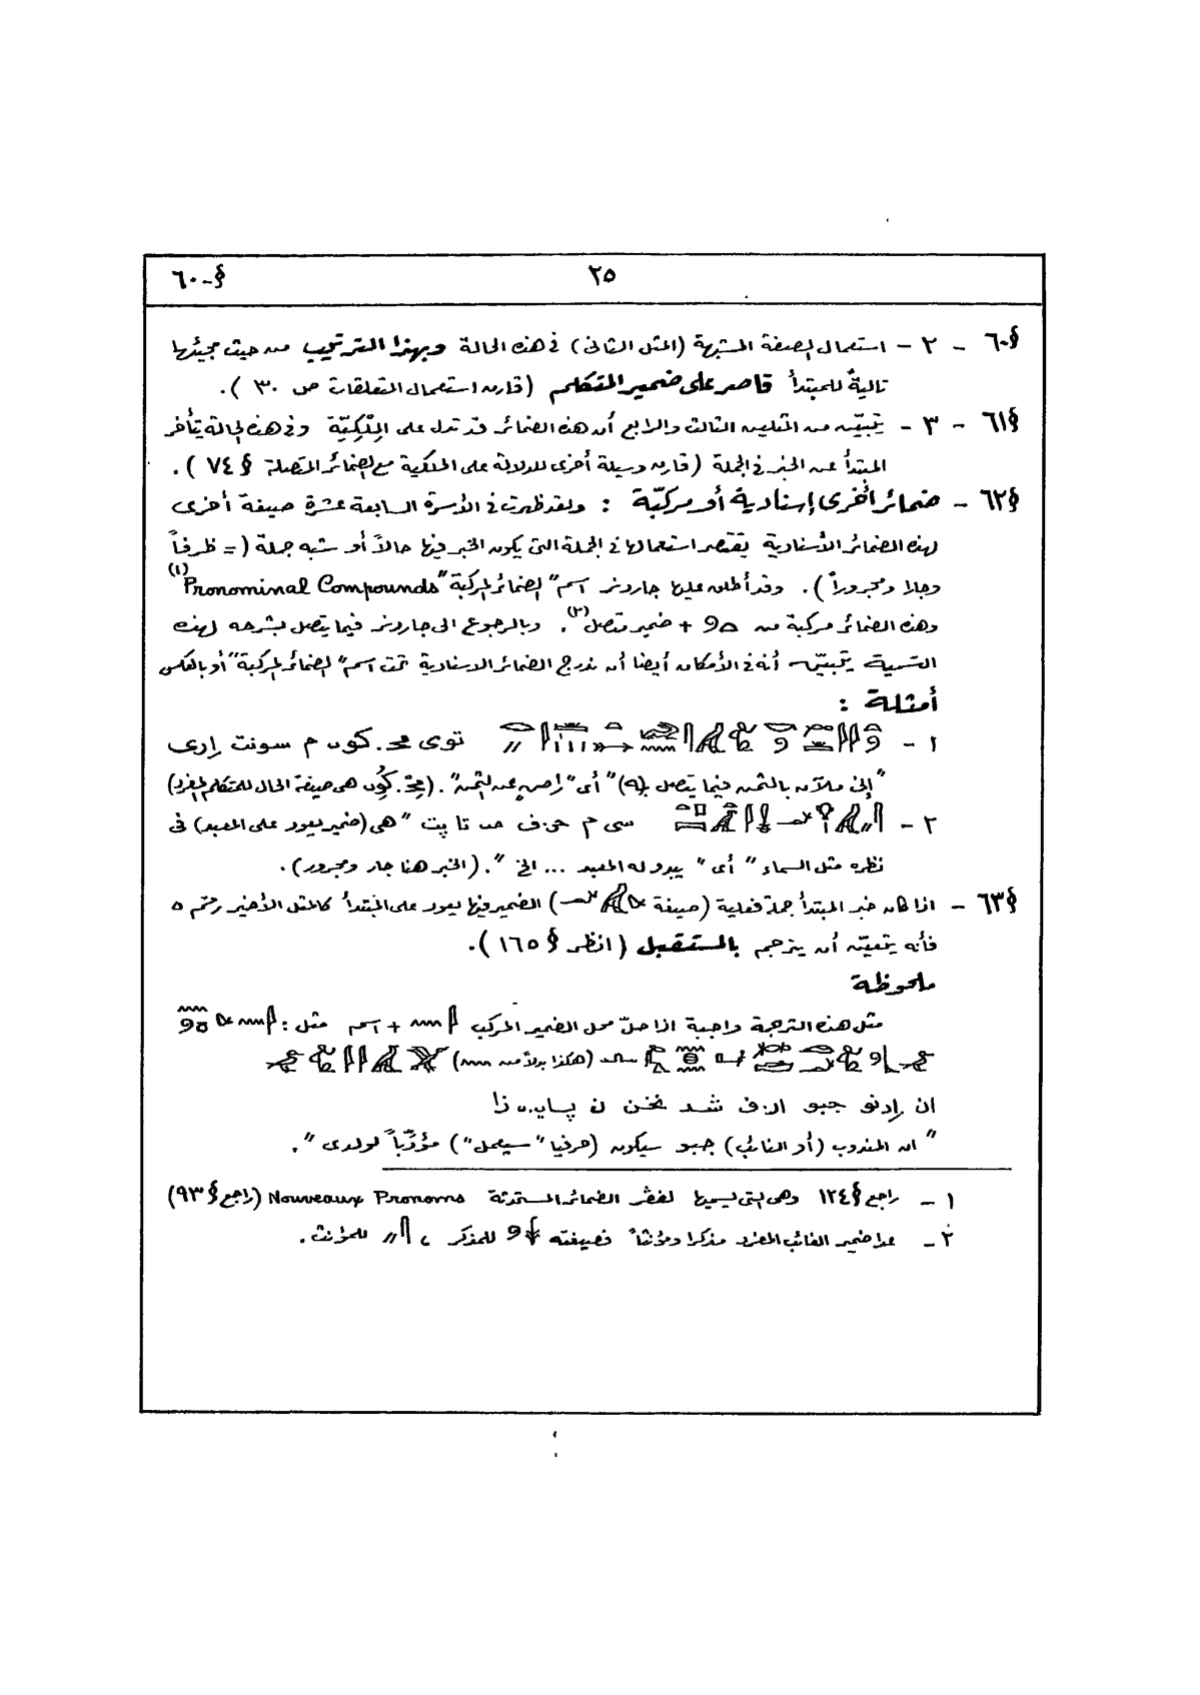 §-٦٠ ٢٥
§٦٠ - ٢ - استعمال الصفة المشبهة (المثل الثانى) فى هذه الحالة وبهذا الترتيب من حيث مجيئها
تاليةً للمبتدأ قاصر على ضمير المتكلم (قارن استعمال المتعلقات ص ٣٠ ).
§٦١ - ٣ - يتبيّن من المثلين الثالث والرابع أن هذه الضمائر قد تدل على المِلْكِيّة وفى هذه الحالة يتأخر
المبتدأ عن الخبر فى الجملة (قارن وسيلة أخرى للدلالة على الملكية مع الضمائر المتصلة § ٧٤ ).
§٦٢ - ضمائر أخرى إسنادية أو مركبّة : ولقد ظهرت فى الأسرة السابعة عشرة صيغة أخرى
لهذه الضمائر الأسنادية يقتصر استعمالها فى الجملة التى يكون الخبر فيها حالاً أو شبه جملة ( = ظرفاً
وجارا ومجروراً ). وقد أطلق عليها جاردنر اسم "الضمائر المركبة" Pronominal Compounds (١)
وهذه الضمائر مركبة من + ضمير متصل (٢). وبالرجوع الى جاردنر فيما يتصل بشرحه لهذه
التسمية يتبيّن أنه فى الأمكان أيضا أن ندرج الضمائر الاسنادية تحت اسم "الضمائر المركبة" أو بالعكس
أمثلة :
١ - توى مح. كون م سونت إرى
"إنى ملآن بالثمن فيما يتصل بـ(ه)" أى "راضٍ عن الثمن". (مح. كون هى صيغة الحال للمتكلم المفرد)
٢ - سى م حر.ف من تا پت "هى (ضمير يعود على المعبد) فى
نظره مثل السماء" أى "يبدو له المعبد ... الخ ". (الخبر هنا جار ومجرور).
§٦٣ - اذا كان خبر المبتدأ جملة فعلية (صيغة ) الضمير فيها يعود على المبتدأ كالمثل الأخير رقم ٥
فأنه يتعيّن أن يترجم بالمستقبل ( انظر § ١٦٥ ).
ملحوظة
مثل هذه الترجمة واجبة اذا حلّ محل الضمير المركب + اسم مثل :
(هكذا بدلاً من )
ان إدنو جبو ار.ف شد نخن ن پساى. ذا
" ان المندوب (أو النائب) جبو سيكون (حرفيا "سيعمل") مؤدّباً لولدى ".
١ - راجع § ١٢٤ وهى التى يسميها لفڤر الضمائر المستحدثة Nouveaux Pronoms (راجع § ٩٣)
٢ - عدا ضمير الغائب المفرد مذكرا ومؤنثاً فصيغته للمذكر ، للمؤنث .